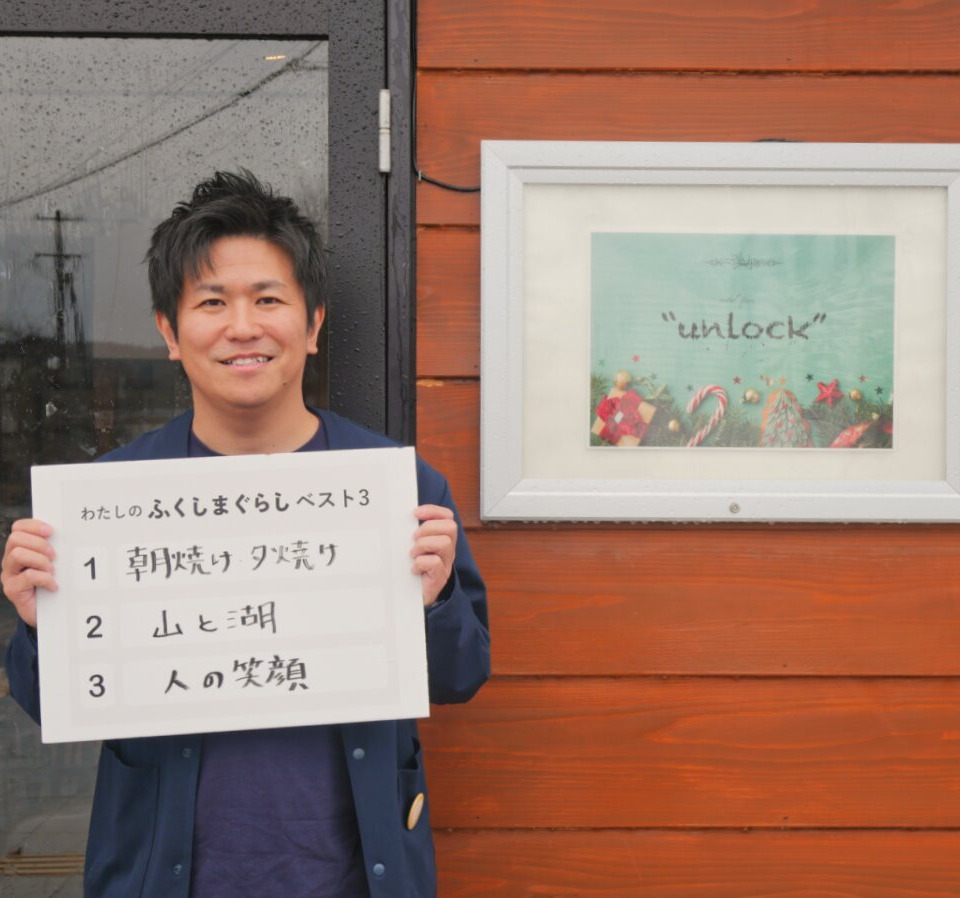 わたしの ふくしまぐらし ベスト3
1 朝焼け 夕焼け
2 山と湖
3 人の笑顔
"unlock"